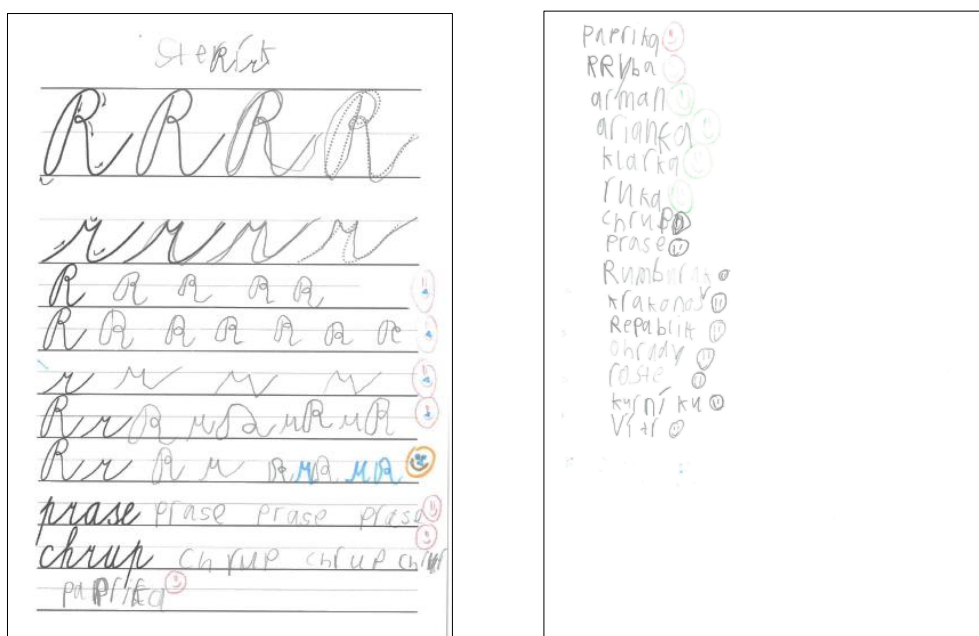 R R R R
r r r r
R R R R R
R R R R R R R
r r r r
R r R r R r R r R
R r R r R r R r R
prase prase prase prase
chrup chrup chrup chrup
paprika
paprika
RRyba
arman
arianka
klarka
ruka
chrup
prase
Rumburak
krakonoš
Repablik
ohrady
roste
kurníku
Vítr